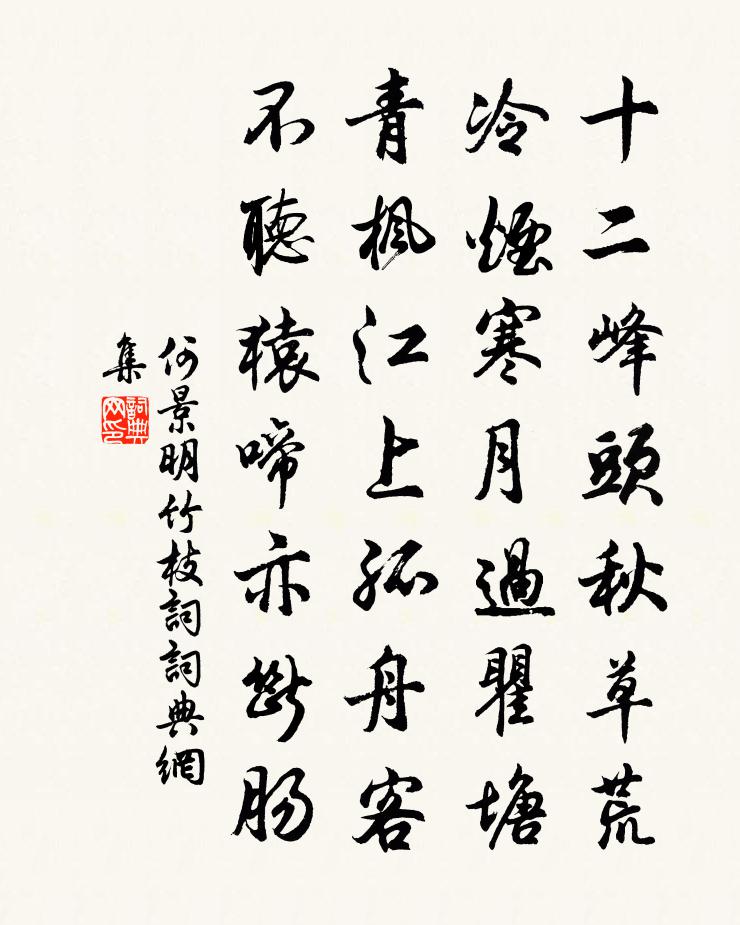 十二峰頭秋草荒
冷煙寒月過瞿塘
青楓江上孤舟客
不聽猿啼亦斷腸
何景明竹枝詞詞典網
集
詞典网印